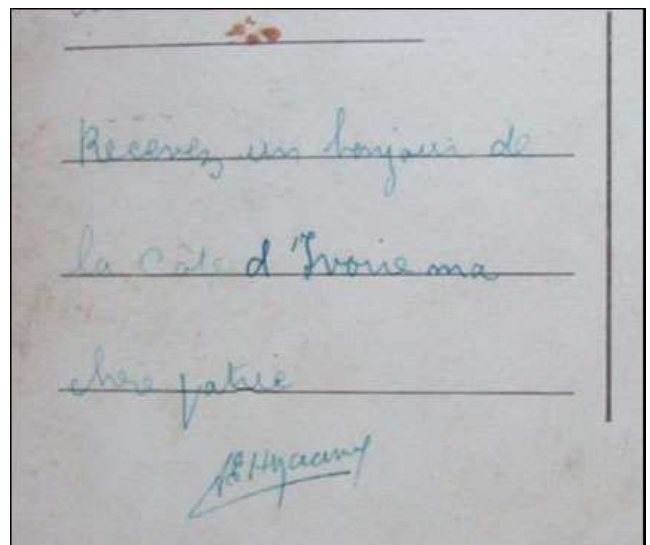 Recevez un bonjour de
la Côte d'Ivoire ma
chère patrie